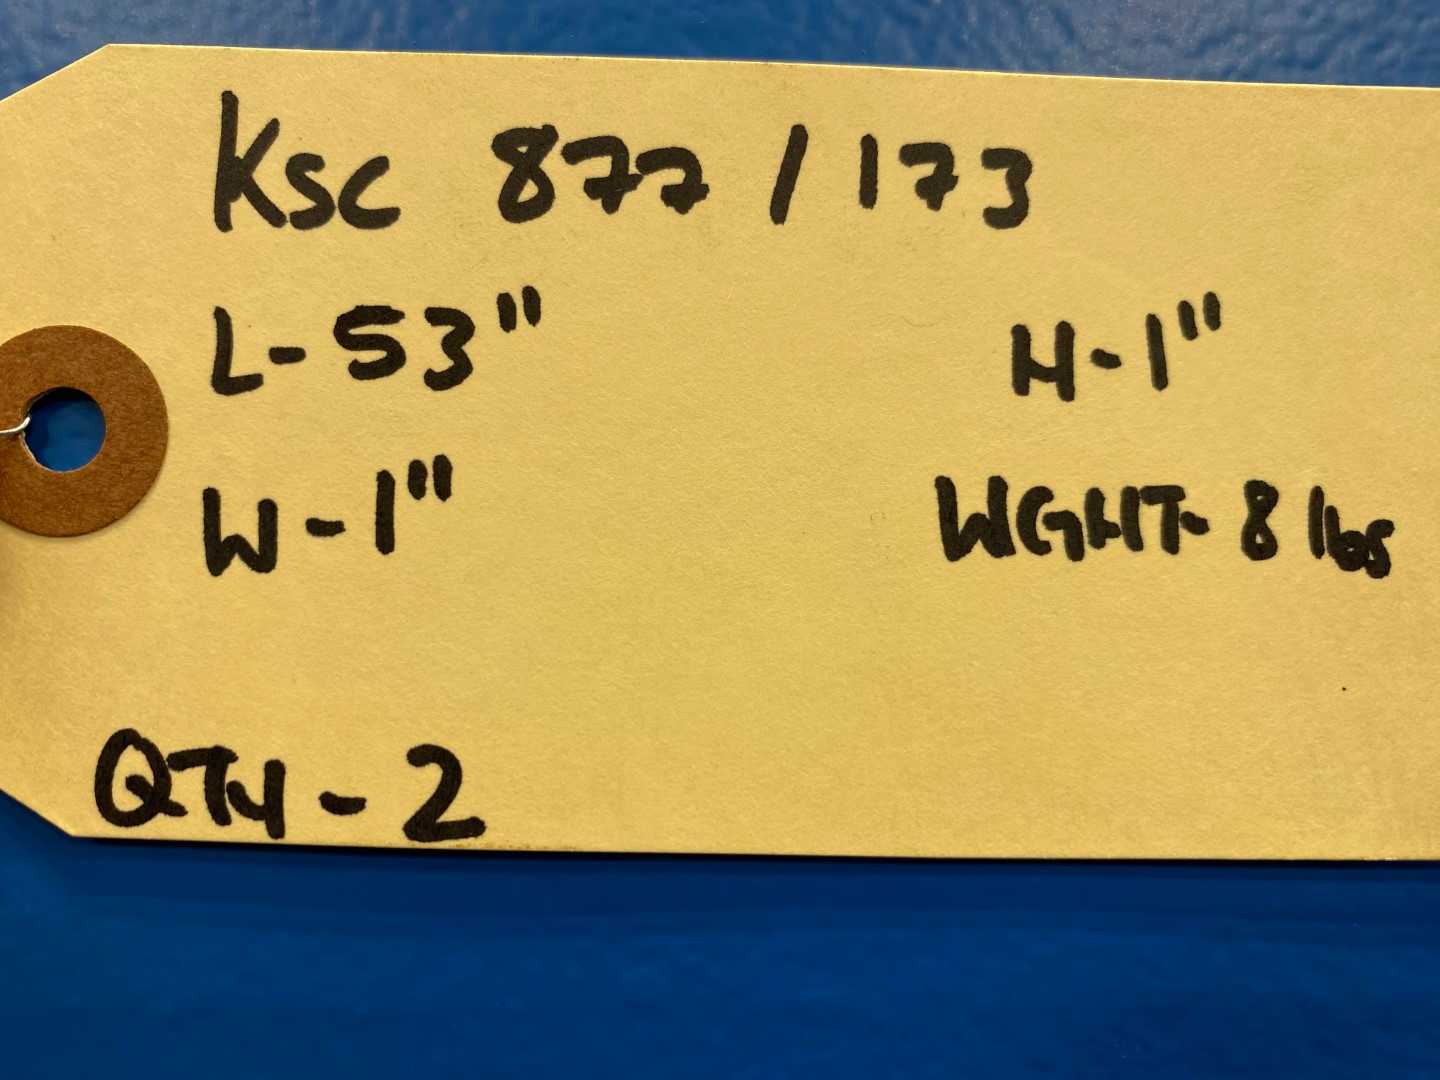 KSC 877 / 173
L-53" H-1"
W-1" WGHT- 8 lbs
QTY-2